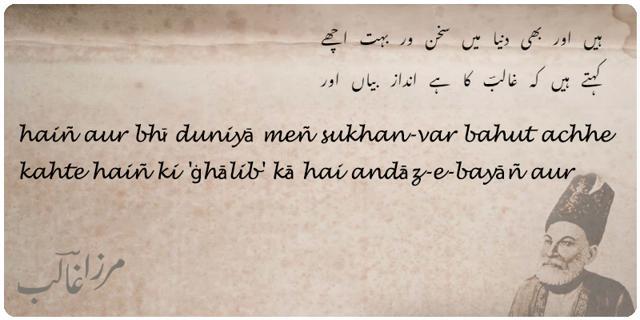 ہیں اور بھی دنیا میں سخن ور بہت اچھے
کہتے ہیں کہ غالبؔ کا ہے انداز بیاں اور
haiñ aur bhī duniyā meñ sukhan-var bahut achhe
kahte haiñ ki 'ġhālib' kā hai andāz-e-bayāñ aur
مرزا غالبؔ